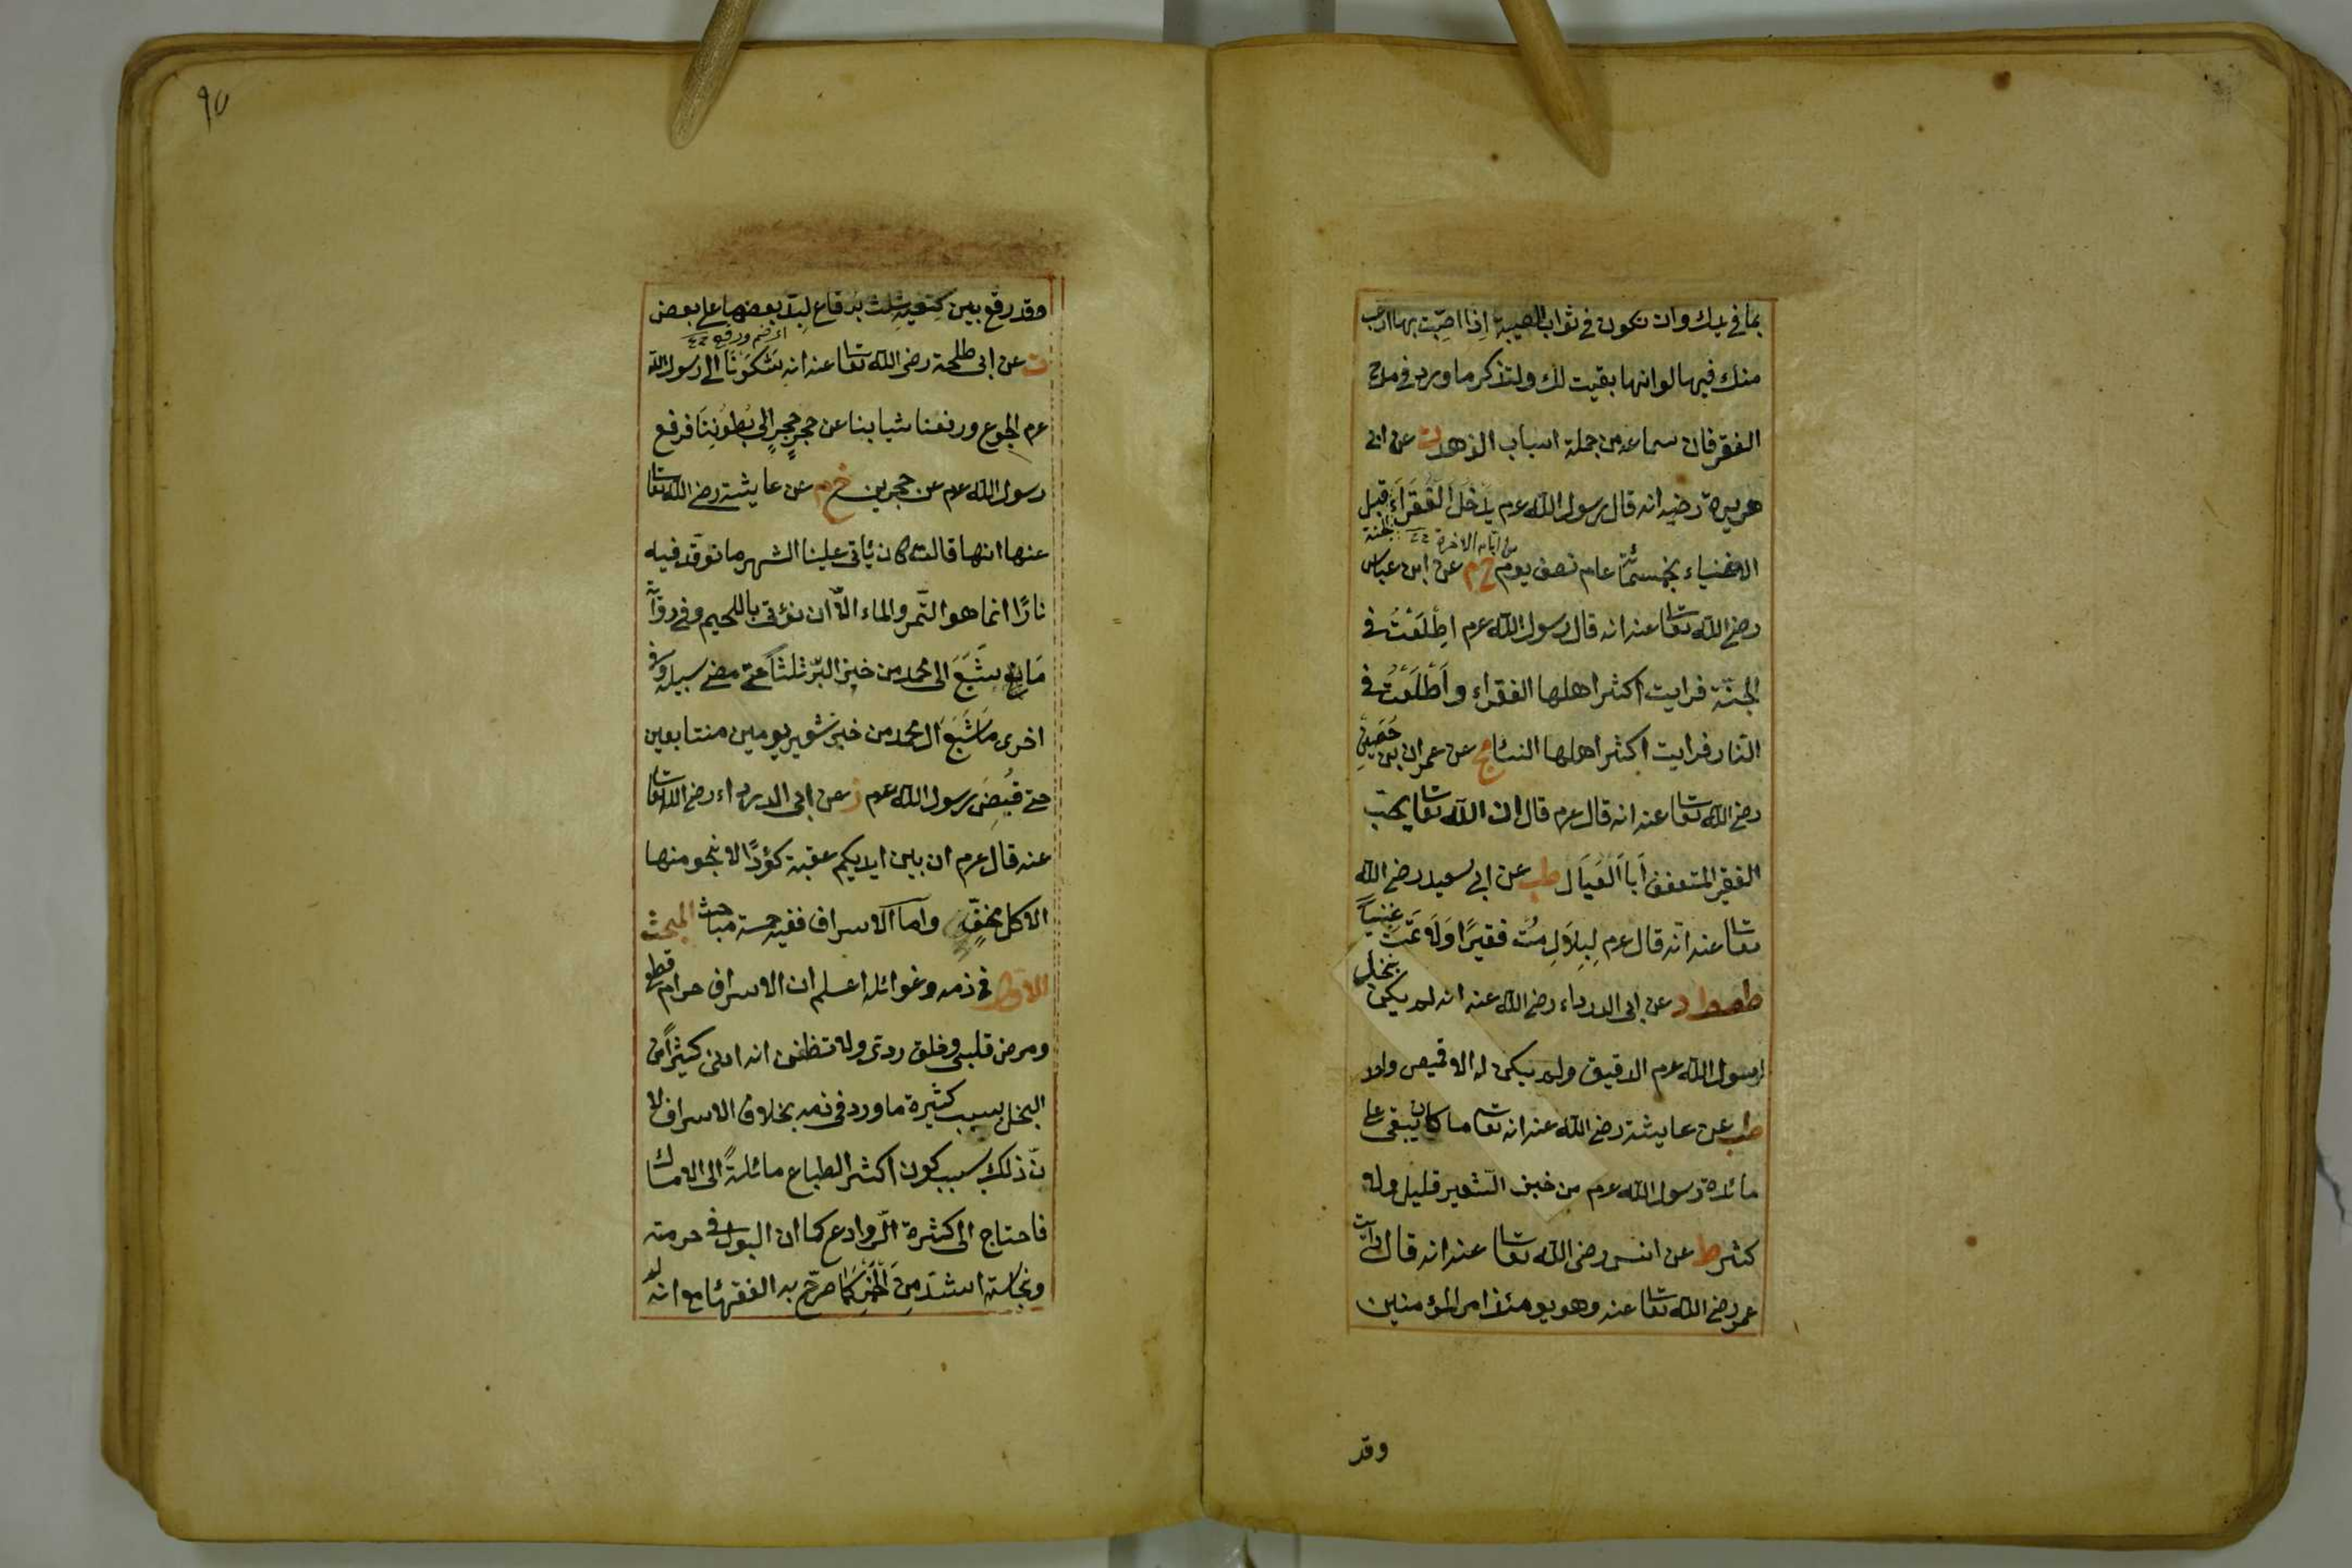 بما في يدك وان تكون في ثواب المصيبة اِذا اصبت بها ارغب
منك فيها لو انها بقيت لك ولتذكر ما ورد في مدح
الفقر فان سماعه من جملة اسباب الزهد ت عن ابى
هريرة رضيه انه قال رسول الله عم يَدْخُلُ الْفُقَرَاءُ قبل
الجنة
من ايام الاخرة
الاغنياء بخمسمائة عام نصف يوم خ م عن ابن عباس
رضى الله تعا عنه انه قال رسول الله عم اِطَّلَعْتُ في
الجنّة فرايت اكثر اهلها الفقراء واَطَّلَعْتُ في
النّار فرايت اكثر اهلها النساء مج عن عمران بن حُصَيْنٍ
رضى الله تعا عنه انه قال عم قال ان الله تعا يحبّ
الفقير المتعفف اَبَا الْعِيَال طب عن ابى سعيد رضى الله
تعا عنه انّه قال عم لِبِلاَلٍ مُتْ فقيرًا وَلَا تَمُتْ غنيّاً
طص عن ابى الدرداء رضى الله عنه انه لم يكن ينخل
لرسول الله عم الدقيق ولم يكن له الا قميص واحد
طب عن عايشة رضى الله عنه انه تعا ما كان يبقى على
مائدة رسول الله عم من خبز الشّعير قليل ولا
كثير ط عن انس رضى الله تعا عنه انه قال رأيت
عمر رضى الله تعا عنه وهو يومئذ امير المؤمنين
وقد
٩٥
وقد رقع بين كتفيه بثلث رقاع لبد بعضها على بعض
ت عن ابى طلحة رضى الله تعا عنه انه شَكَوْنَا الى رسول الله
عم الجوع ورفعنا ثيابنا عن حجرٍ حجرٍ الى بُطُونِنَا فرفع
رسول الله عم عن حجرين خ م عن عايشة رضى الله تعا
عنها انها قالت كان يأتى علينا الشهر ما نوقد فيه
نارًا انما هو التّمر والماء الّا ان نؤتى باللحيم وفي رواية
مَا شَبَعَ ال محمد من خبز البرّ ثلثاً حتى مضى سبيله وفي
اخرى مَا شَبَعَ ال محمد من خبز شعير يومين متتابعين
حتى قُبِضَ رسول الله عم ز عن ابى الدرداء رضى الله تعا
عنه قال عم ان بين ايديكم عقبة كؤدًا لا ينجو منها
الا كل مخفّ واما الاسراف ففيه خمسة مباحث المبحث
الاول في ذمه وغوائله اعلم ان الاسراف حرام قطعى
ومرض قلبى وخلق ردى ولا تظنن انه ادنى كثيراً من
البخل بسبب كثيرة ما ورد في ذمه بخلاف الاسراف لا
نّ ذلك بسبب كون اكثر الطباع مائلةً الى الامساك
فاحتاج الى كثرة الرّوادع كما ان البول في حرمته
ونجاسته اشدّ مِنَ الْخَمْرِ كَمَا صرّح به الفقهاء مع انه لم